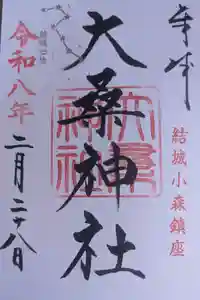 奉拝
結城小森鎮座
大桑神社
令和八年
二月二十八日